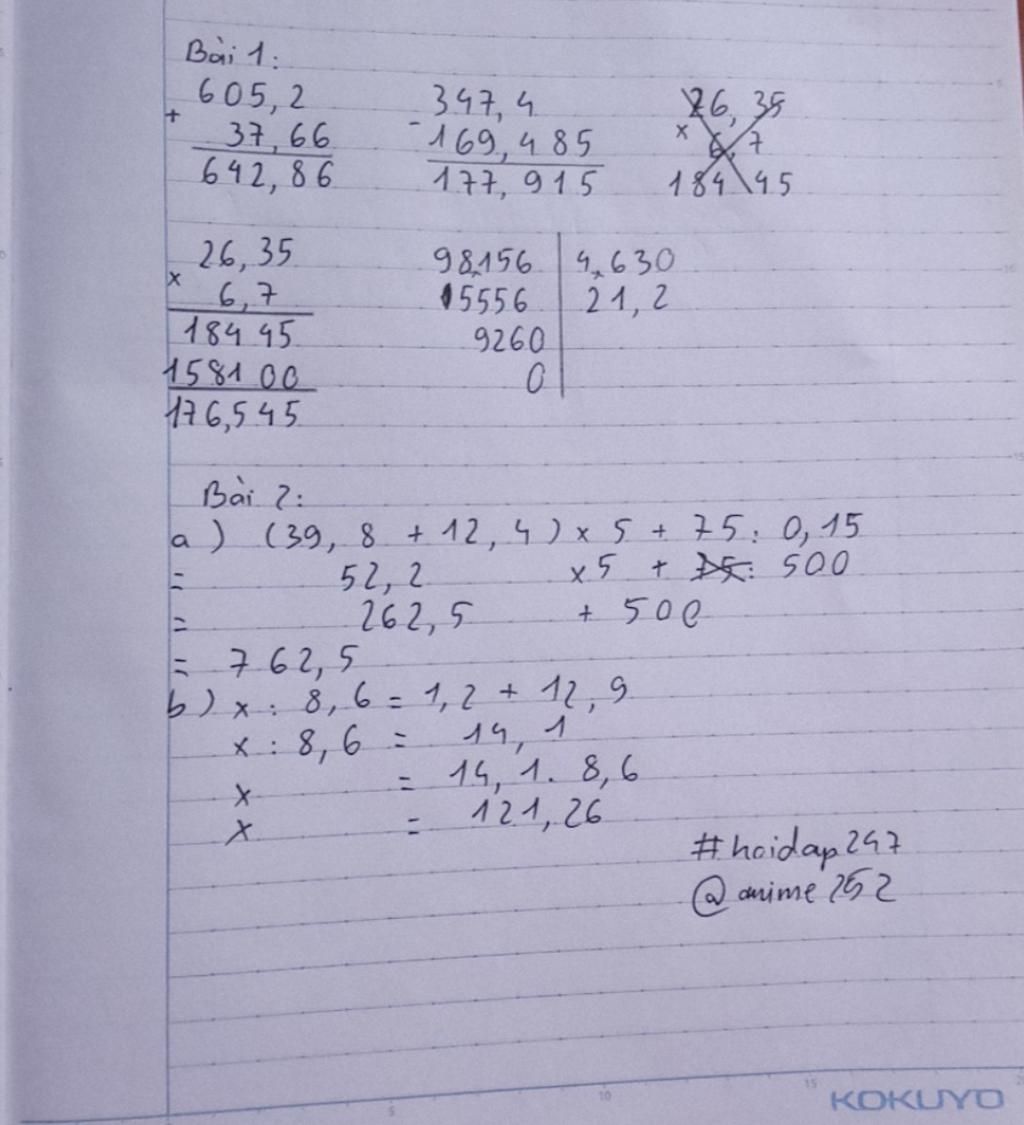 Bài 1:
605,2
+
37,66
642,86
347,4
-
169,485
177,915
26,35
x
6,7
184 45
26,35
x
6,7
184 45
1581 00
176,545
98,156
4,630
15556
21,2
9260
0
Bài 2:
a) (39,8 + 12,4) x 5 + 75 : 0,15
= 52,2 x 5 + 75: 500
= 262,5 + 500
= 762,5
b) x : 8,6 = 1,2 + 12,9
x : 8,6 = 14,1
x = 14,1. 8,6
x = 121,26
#hoidap247
@anime252
5
10
15
KOKUYO